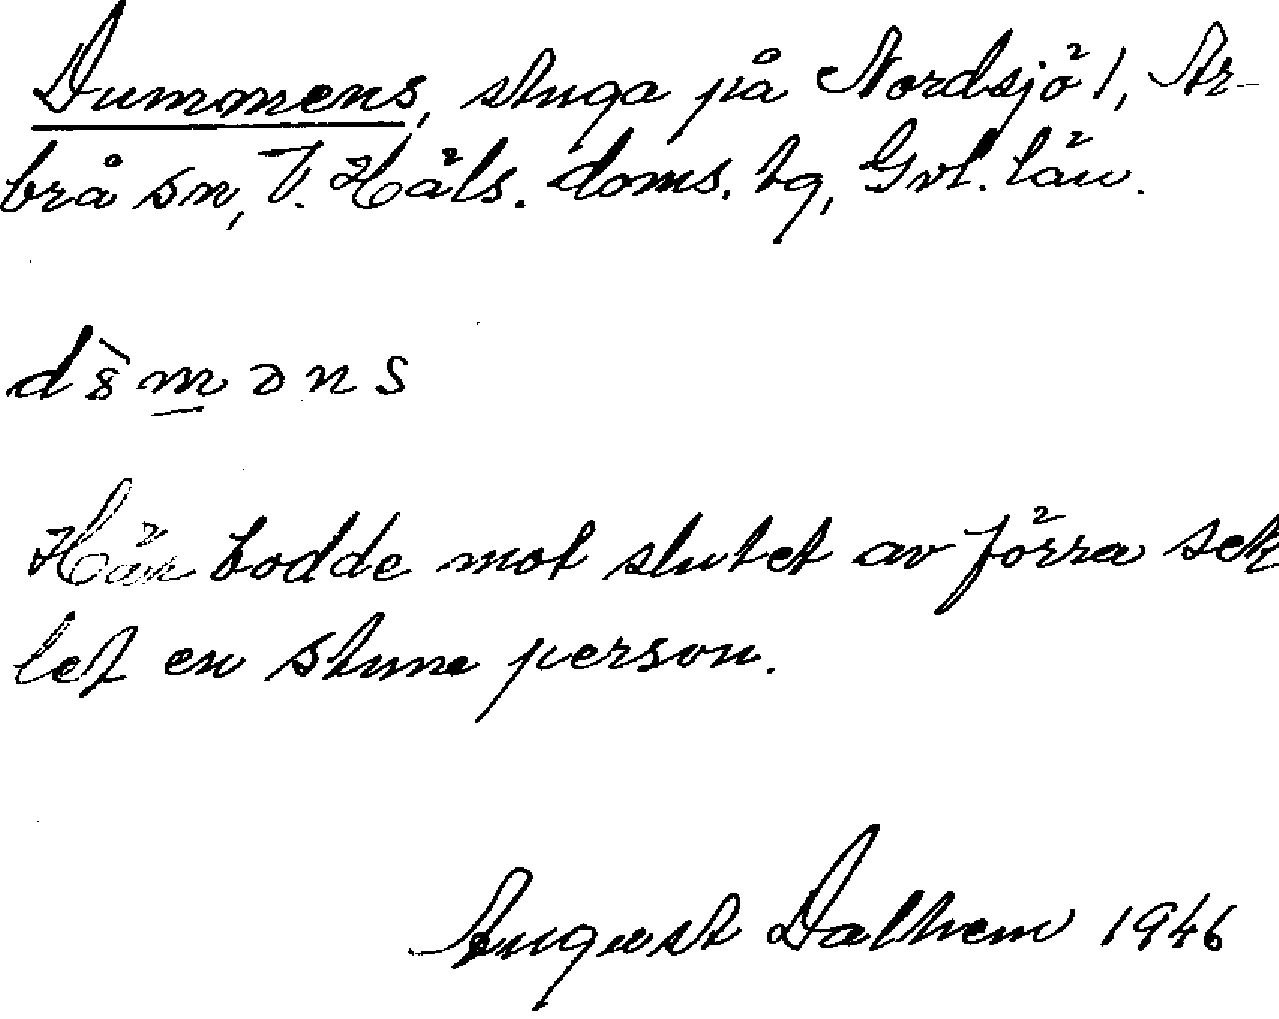 Dummens, stuga på Nordsjö 1, Ar-
brå sn, V. Häls. doms. tg, Gvl. län.
d8̀m̲əns
Här bodde mot slutet av förra sek
let en stum person.
August Dalhem 1946